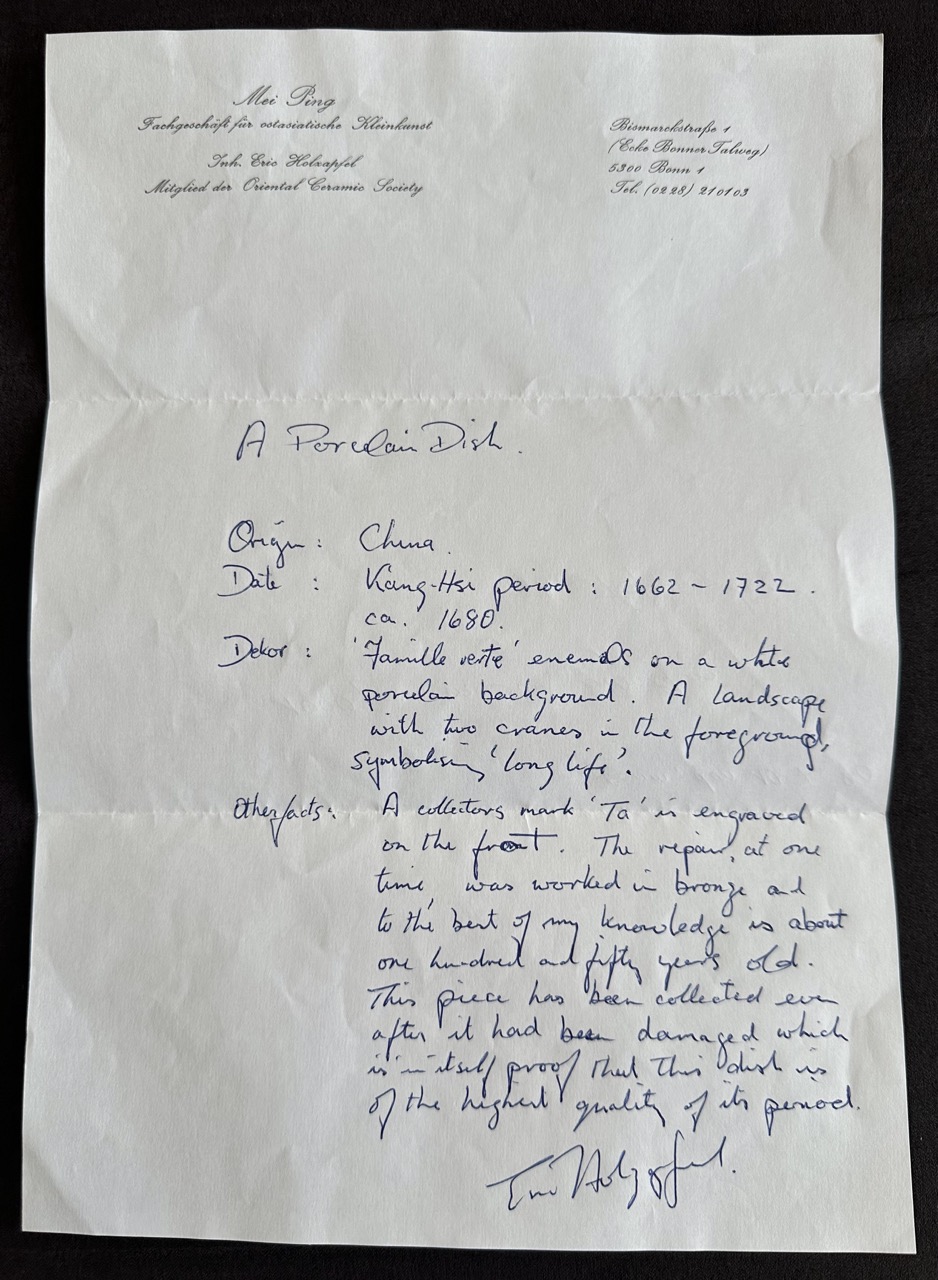 Mei Ping
Fachgeschäft für ostasiatische Kleinkunst
Inh. Eric Holzapfel
Mitglied der Oriental Ceramic Society
Bismarckstraße 1
(Ecke Bonner Talweg)
5300 Bonn 1
Tel. (0228) 210103
A Porcelain Dish.
Origin : China.
Date : Kang-Hsi period : 1662 – 1722.
ca. 1680.
Dekor : 'Famille verte' enemels on a white
porcelain background. A landscape
with two cranes in the foreground,
symbolising 'long life'.
Other facts : A collectors mark 'Ta' is engraved
on the front. The repair, at one
time, was worked in bronze and
to the best of my knowledge is about
one hundred and fifty years old.
This piece has been collected even
after it had been damaged which
is in itself proof that this dish is
of the highest quality of its period.
Eric Holzapfel.